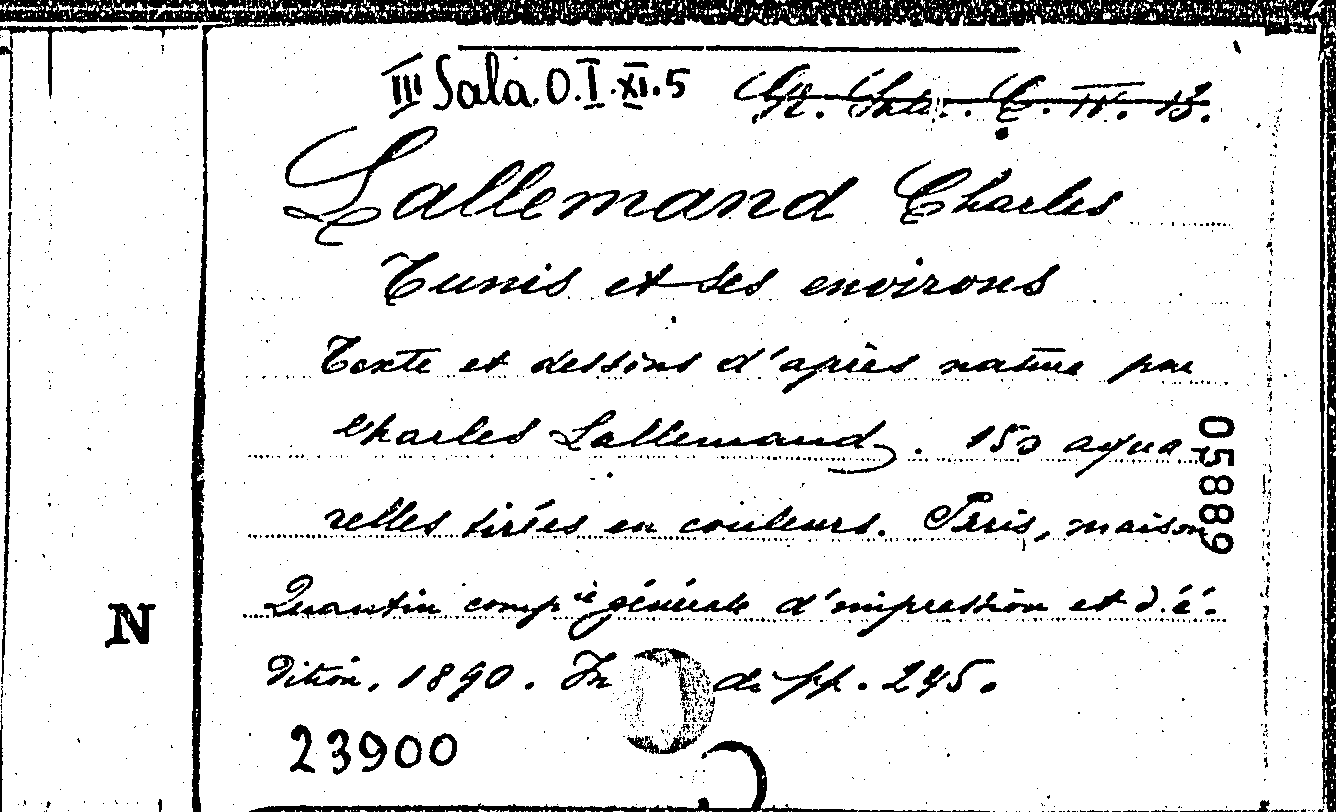 III Sala. O.I.XI.5
Lallemand Charles
Tunis et ses environs
Texte et dessins d'après nature par
Charles Lallemand. 150 aqua-
relles tirées en couleurs. Paris, maison
Quantin comp.ie générale d'impression et d'é-
dition, 1890. In di pp. 245.
23900
N
05889